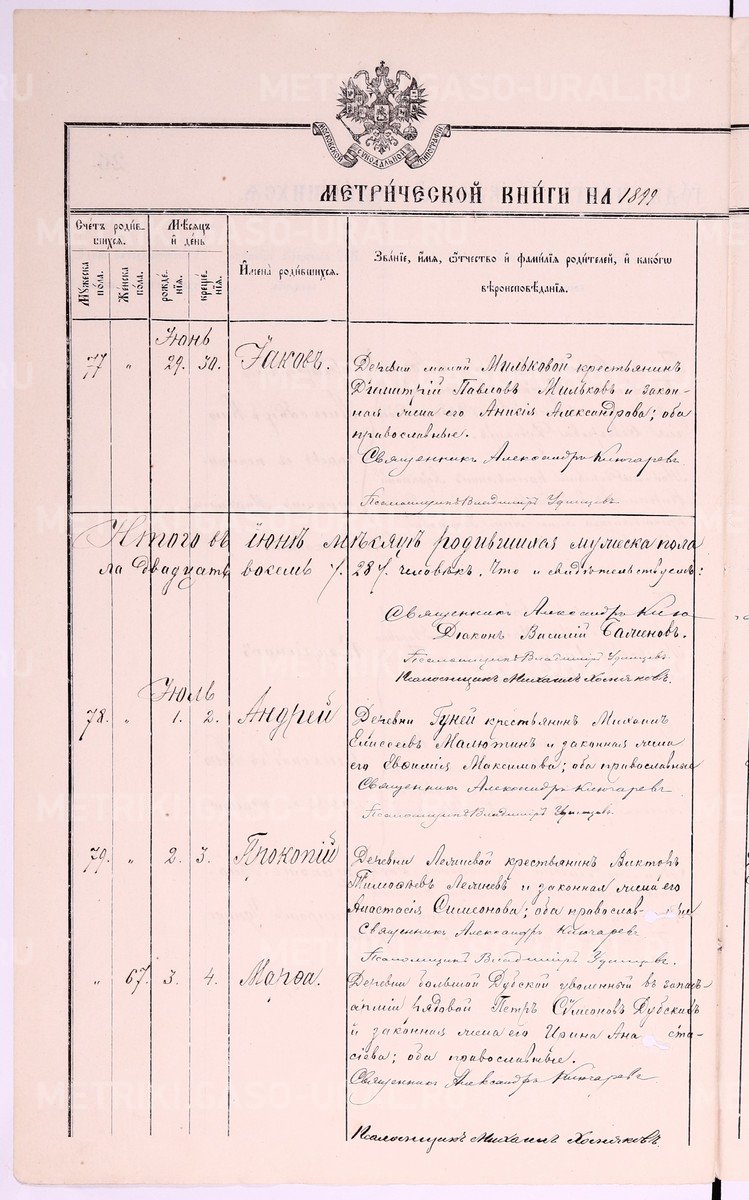 МОСКОВСКОЙ СѴНОДАЛЬНОЙ ТИПОГРАФІИ
МЕТРИ́ЧЕСКОЙ КНИ́ГИ НА 1899
Счетъ роди́в-
шихся.
Мѣсяцъ
и де́нь
И́мена роди́вшихся.
Зва́нїе, и҆́мѧ, ѻ҆́тчество и҆ фами́лїѧ роди́телей, и҆ како́гѡ
вѣроисповѣ́данїѧ.
Му́жеска по́ла.
Же́нска по́ла.
рожде́нїѧ.
креще́нїѧ.
Іюнь
77 " 29. 30. Іаковъ.
Деревни малой Мильковой крестьянинъ
Димитрій Павловъ Мильковъ и закон-
ная жена его Анисія Александрова; оба
православные.
Священникъ Александръ Ключаревъ
Псаломщикъ Владиміръ Удинцевъ
Итого въ іюнѣ мѣсяцѣ родившихся мужеска пола
ла двадцать восемь /. 28 /. человѣкъ. Что и свидѣтельствуемъ:
Священникъ Александръ Клю
Діаконъ Василій Баженовъ.
Псаломщикъ Владиміръ Удинцевъ
Псаломщикъ Михаилъ Хомяковъ.
Іюль
78. " 1. 2. Андрей
Деревни Гуней крестьянинъ Михаилъ
Елисеевъ Малютинъ и законная жена
его Евфимія Максимова; оба православные
Священникъ Александръ Ключаревъ
Псаломщикъ Владиміръ Удинцевъ
79. " 2. 3. Прокопій
Деревни Лемшевой крестьянинъ Викторъ
Тимофеевъ и законная жена его
Анастасія Симеонова; оба православные
Священникъ Александръ Ключаревъ
Псаломщикъ Владиміръ Удинцевъ
" 67. 3. 4. Марѳа.
Деревни большой Дубской уволенный въ запасъ
арміи рядовой Петръ Симеоновъ Дубскихъ
и законная жена его Ирина Ана ста-
сіева; оба православные.
Священникъ Александръ Ключаревъ
Псаломщикъ Михаилъ Хомяковъ.